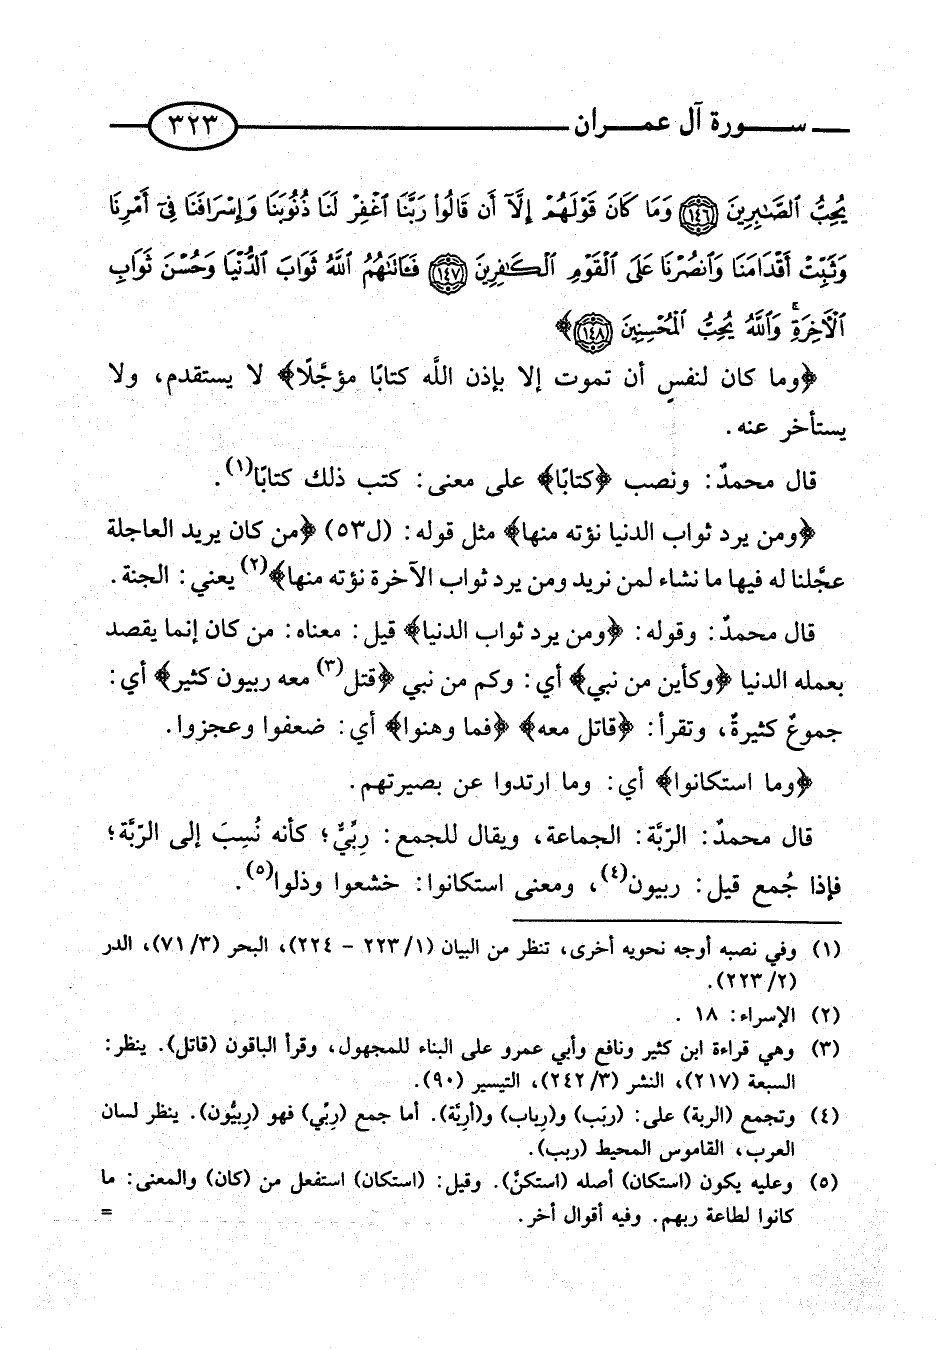 سورة آل عمران ٣٢٣
يُحِبُّ ٱلصَّٰبِرِينَ ١٤٦ وَمَا كَانَ قَوْلَهُمْ إِلَّآ أَن قَالُوا۟ رَبَّنَا ٱغْفِرْ لَنَا ذُنُوبَنَا وَإِسْرَافَنَا فِىٓ أَمْرِنَا
وَثَبِّتْ أَقْدَامَنَا وَٱنصُرْنَا عَلَى ٱلْقَوْمِ ٱلْكَٰفِرِينَ ١٤٧ فَـَٔاتَىٰهُمُ ٱللَّهُ ثَوَابَ ٱلدُّنْيَا وَحُسْنَ ثَوَابِ
ٱلْـَٔاخِرَةِ ۗ وَٱللَّهُ يُحِبُّ ٱلْمُحْسِنِينَ ١٤٨﴾
﴿وما كان لنفسٍ أن تموت إلا بإذن اللَّه كتابًا مؤجَّلًا﴾ لا يستقدم، ولا
يستأخر عنه.
قال محمدٌ: ونصب ﴿كتابًا﴾ على معنى: كتب ذلك كتابًا(١).
﴿ومن يرد ثواب الدنيا نؤته منها﴾ مثل قوله: (ل٥٣) ﴿من كان يريد العاجلة
عجَّلنا له فيها ما نشاء لمن نريد ومن يرد ثواب الآخرة نؤته منها﴾(٢) يعني: الجنة.
قال محمدٌ: وقوله: ﴿ومن يرد ثواب الدنيا﴾ قيل: معناه: من كان إنما يقصد
بعمله الدنيا ﴿وكأين من نبي﴾ أي: وكم من نبي ﴿قتل(٣) معه ربيون كثير﴾ أي:
جموعٌ كثيرةٌ، وتقرأ: ﴿قاتل معه﴾ ﴿فما وهنوا﴾ أي: ضعفوا وعجزوا.
﴿وما استكانوا﴾ أي: وما ارتدوا عن بصيرتهم.
قال محمدٌ: الرّبَّة: الجماعة، ويقال للجمع: رِبِّيٌّ؛ كأنه نُسِبَ إلى الرّبَّة؛
فإذا جُمع قيل: ربيون(٤)، ومعنى استكانوا: خشعوا وذلوا(٥).
(١) وفي نصبه أوجه نحويه أخرى، تنظر من البيان (١/ ٢٢٣ - ٢٢٤)، البحر (٣/ ٧١)، الدر
(٢/ ٢٢٣).
(٢) الإسراء: ١٨ .
(٣) وهي قراءة ابن كثير ونافع وأبي عمرو على البناء للمجهول، وقرأ الباقون (قاتل). ينظر:
السبعة (٢١٧)، النشر (٣/ ٢٤٢)، التيسير (٩٠).
(٤) وتجمع (الربة) على: (ربَب) و(رِباب) و(أربَّة). أما جمع (ربِّي) فهو (ربيُّون). ينظر لسان
العرب، القاموس المحيط (ربب).
(٥) وعليه يكون (استكان) أصله (استكنَّ). وقيل: (استكان) استفعل من (كان) والمعنى: ما
كانوا لطاعة ربهم. وفيه أقوال أخر. =